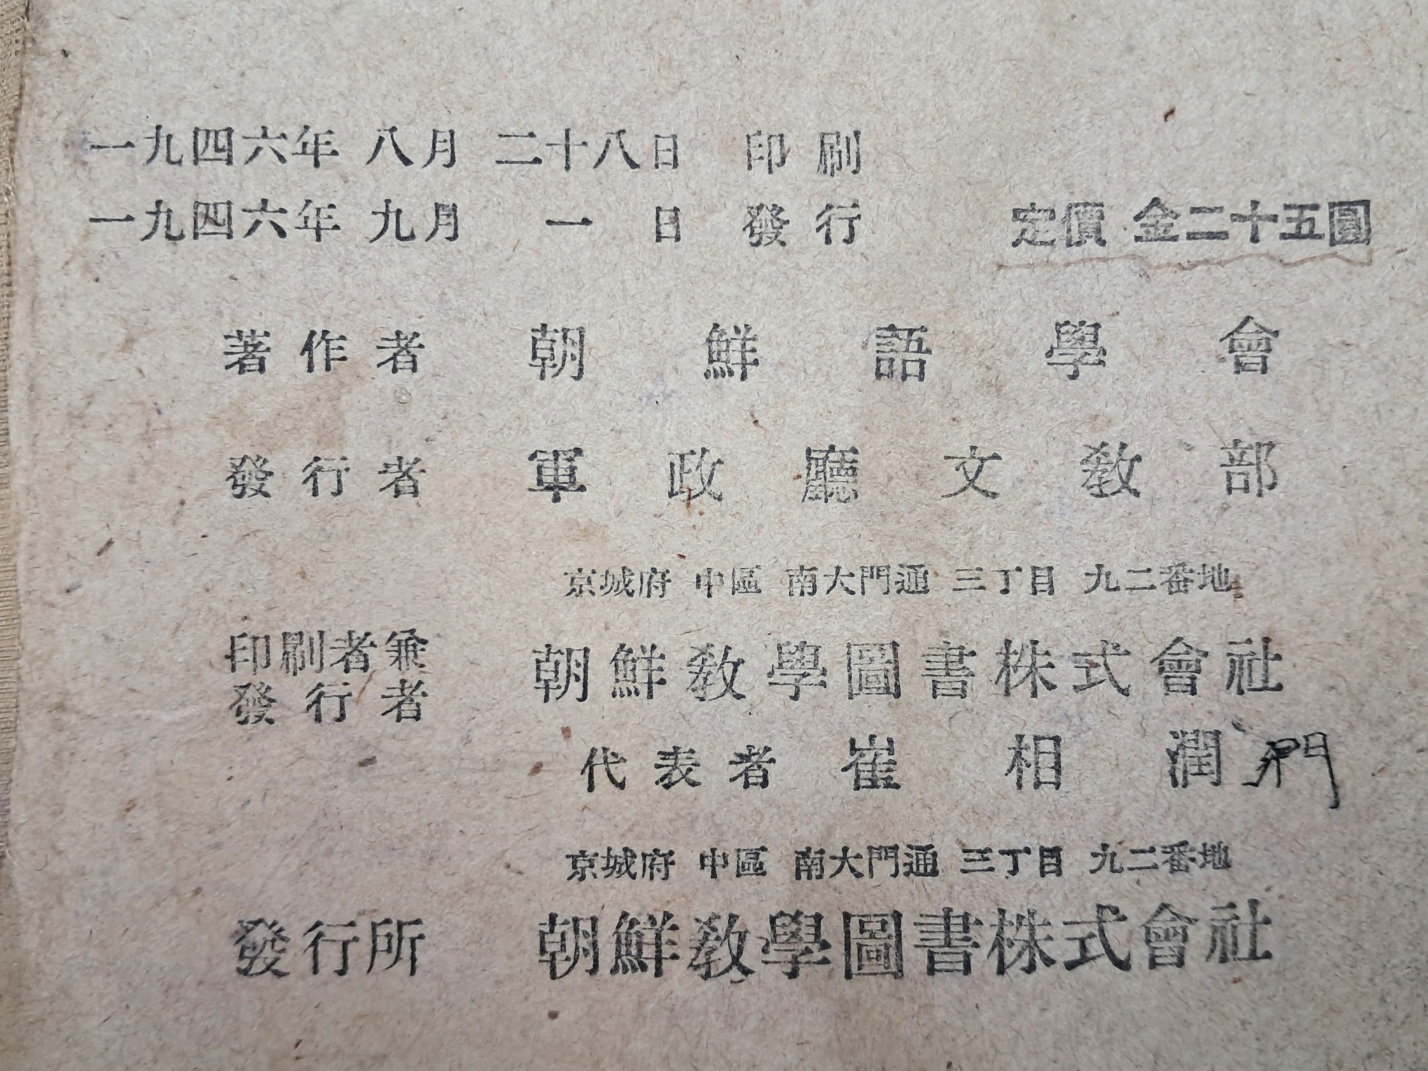 一九四六年 八月 二十八日 印刷
一九四六年 九月 一 日 發行 定價 金二十五圓
著作者 朝鮮語學會
發行者 軍政廳文敎部
京城府 中區 南大門通 三丁目 九二番地
印刷者兼
發行者 朝鮮敎學圖書株式會社
代表者 崔相潤
京城府 中區 南大門通 三丁目 九二番地
發行所 朝鮮敎學圖書株式會社